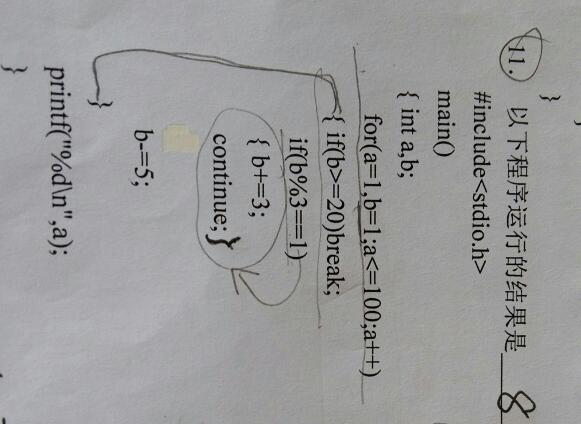 }
11. 以下程序运行的结果是 8
#include<stdio.h>
main()
{ int a,b;
for(a=1,b=1;a<=100;a++)
{ if(b>=20)break;
if(b%3==1)
{ b+=3;
continue; }
b-=5;
}
printf("%d\n",a);
}